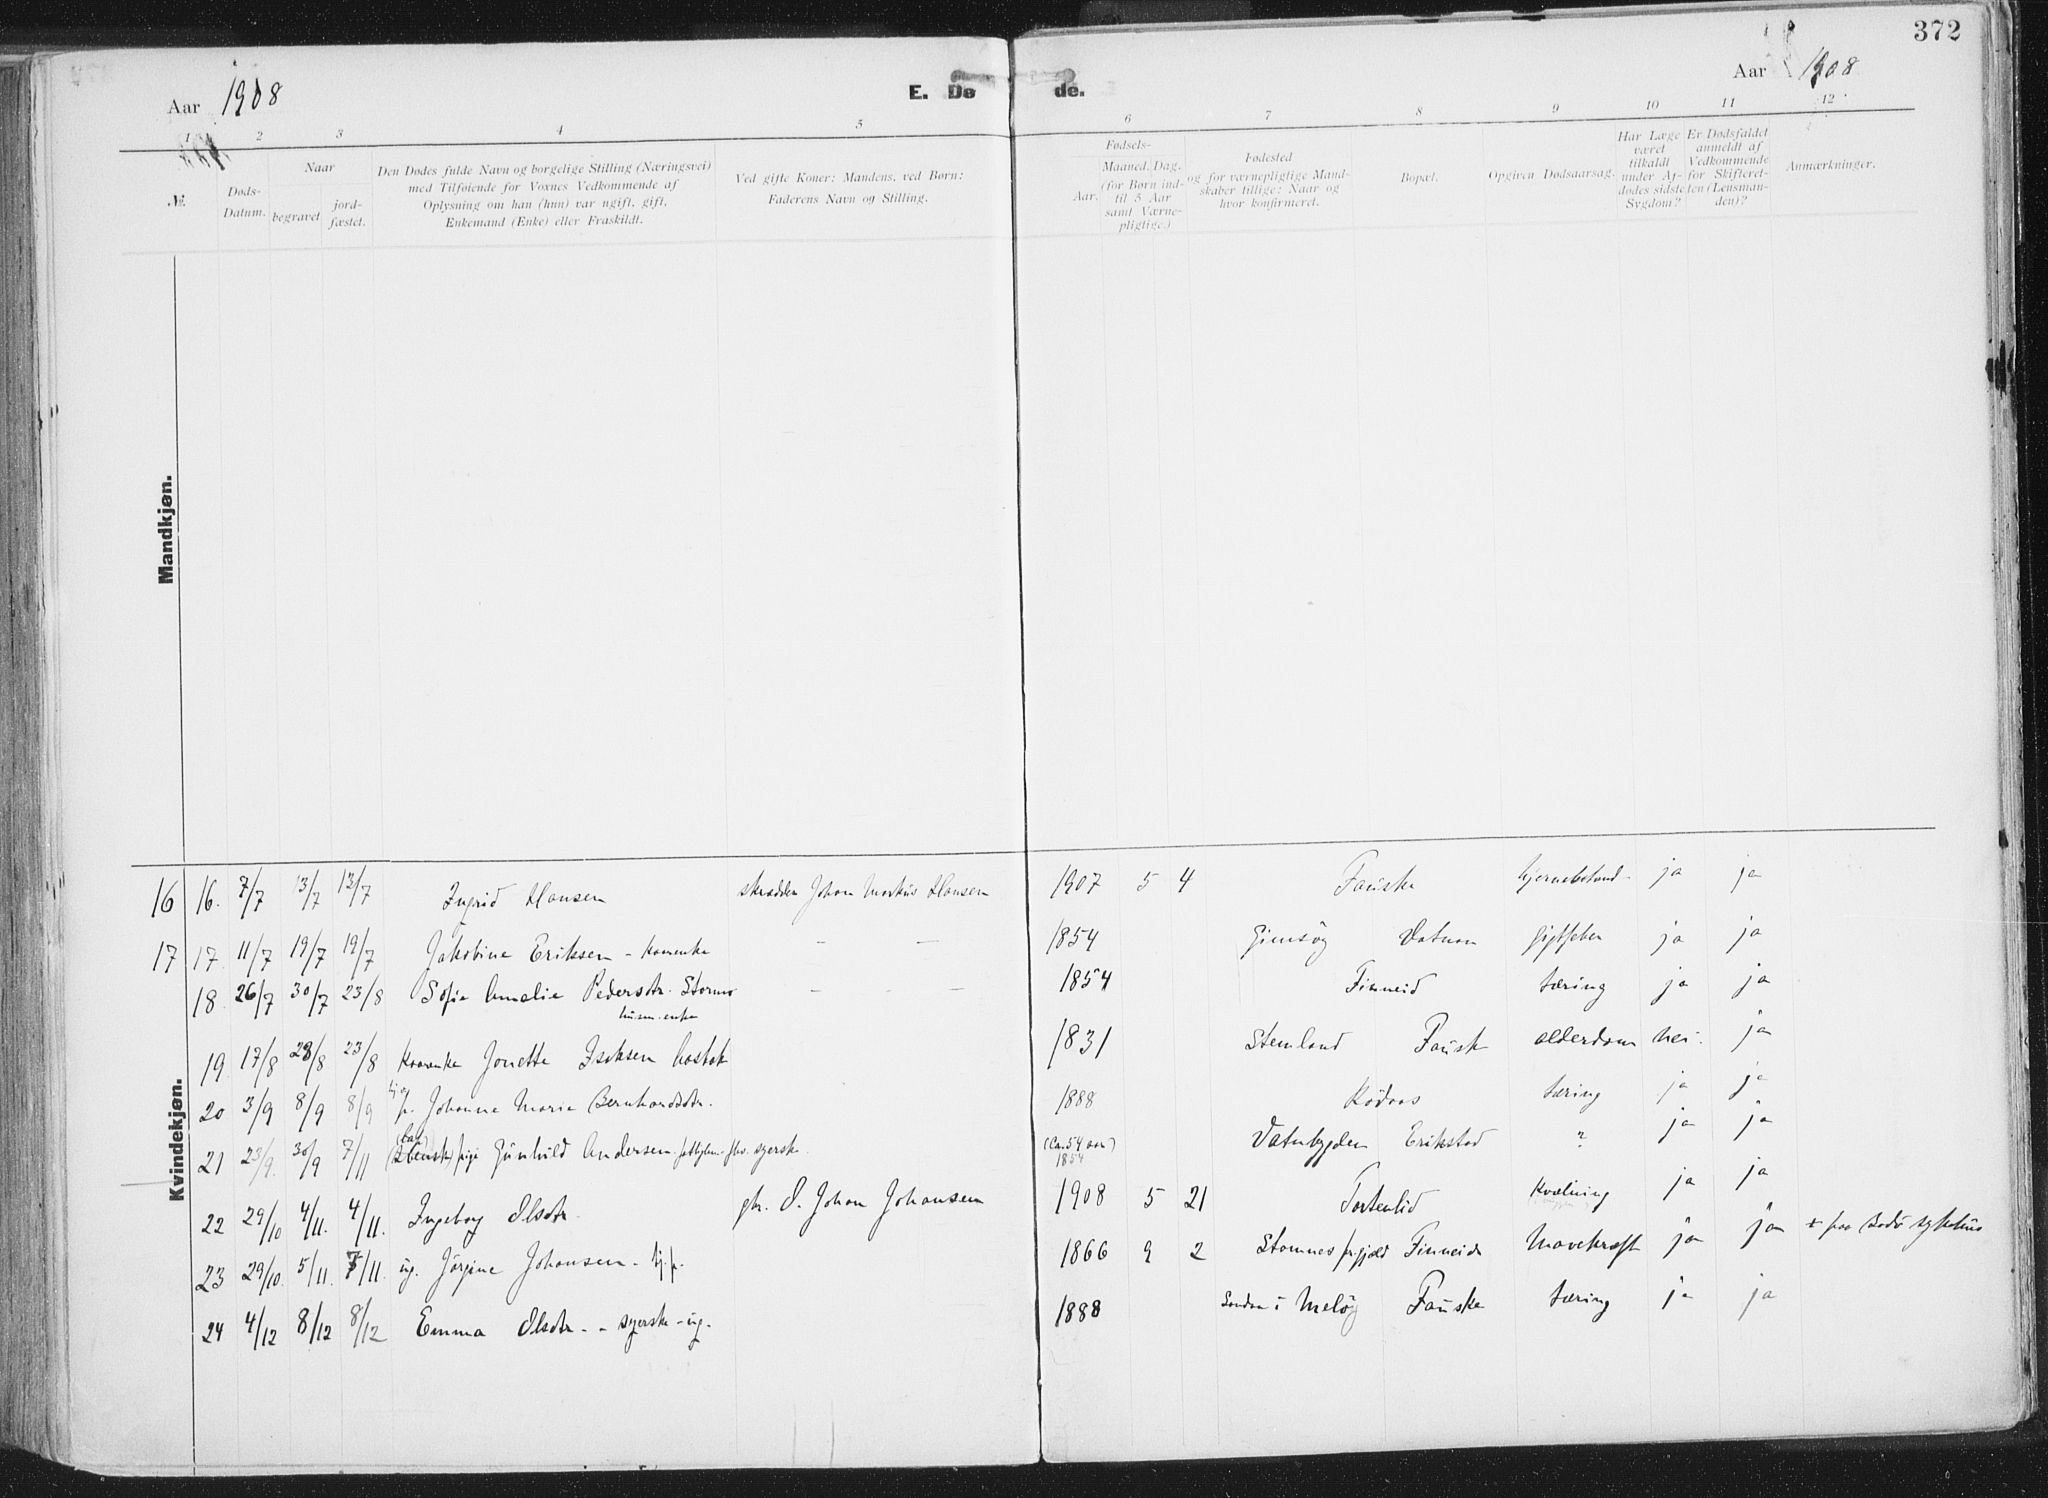 372
Aar 1908
E. Dø de.
Aar 1908
1 2 3 4 5 6 7 8 9 10 11 12
№.
Døds-Datum.
Naar
begravet
jord-fæstet.
Den Dødes fulde Navn og borgelige Stilling (Næringsvei)
med Tilføiende for Voxnes Vedkommende af
Oplysning om han (hun) var ugift, gift,
Enkemand (Enke) eller Fraskildt.
Ved gifte Koner: Mandens, ved Børn:
Faderens Navn og Stilling.
Fødsels-
Aar.
Maaned. Dag.
(for Børn ind-
til 5 Aar
samt Værne-
pligtige.)
Fødested
og for værnepligtige Mand-
skaber tillige: Naar og
hvor konfirmeret.
Bopæl.
Opgiven Dødsaarsag.
Har Læge
været
tilkaldt
under Af-
dødes sidste
Sygdom?
Er Dødsfaldet
anmeldt af
Vedkommende
for Skifteret-
ten (Lensman-
den)?
Anmærkninger.
Mandkjøn.
Kvindekjøn.
16 16. 7/7 13/7 13/7 Ingrid Hansen skrædder Johan Markus Hansen 1907 5 4 Fauske hjernebetænd- ja ja
17 17 11/7 19/7 19/7 Jakobine Eriksen - kaarenke - - 1854 Gimsøy Vatnan Gigtfeber ja ja
18. 26/7 30/7 23/8 Sofie Amalie Pedersdtr. Stormo - - - 1854 Finneid tæring ja ja
husm. enke
19. 17/8 28/8 23/8 kaarenke Jonette Isaksen 1831 Stemland Fausk alderdom nei. ja
20 3/9 8/9 8/9 Johanne Marie Bernhardsdtr. 1888 Rødaas tæring ja ja
21 23/9. 30/9 7/11 pige Gunhild Andersen syerske (ca. 54 aar) 1854 Vatnbygden Erikstad ? ja ja
22 29/10 4/11. 4/11. Ingeborg Olsdtr. Johan Johansen 1908 5 21 Tortenlid Kvælning ja ja
23 29/10. 5/11. 7/11. ug. Jørgine Johansen - tj.p. 1866 9 2 Stamnes pr.gjæld Finneid Mavekræft ja ja + paa Bodø sykehus
24 4/12 8/12 8/12 Emma Olsdtr. - syerske - ug. 1888 i Meløy Fauske tæring ja ja